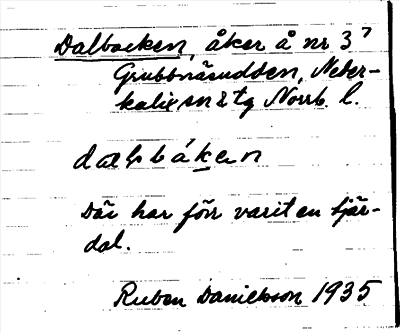 Dalbacken, åker å nr 3⁷
Grubbnäsudden, Neder-
kalix sn & tg Norrb. l.
dalbåken
Där har förr varit en tjär-
dal.
Ruben Danielsson 1935